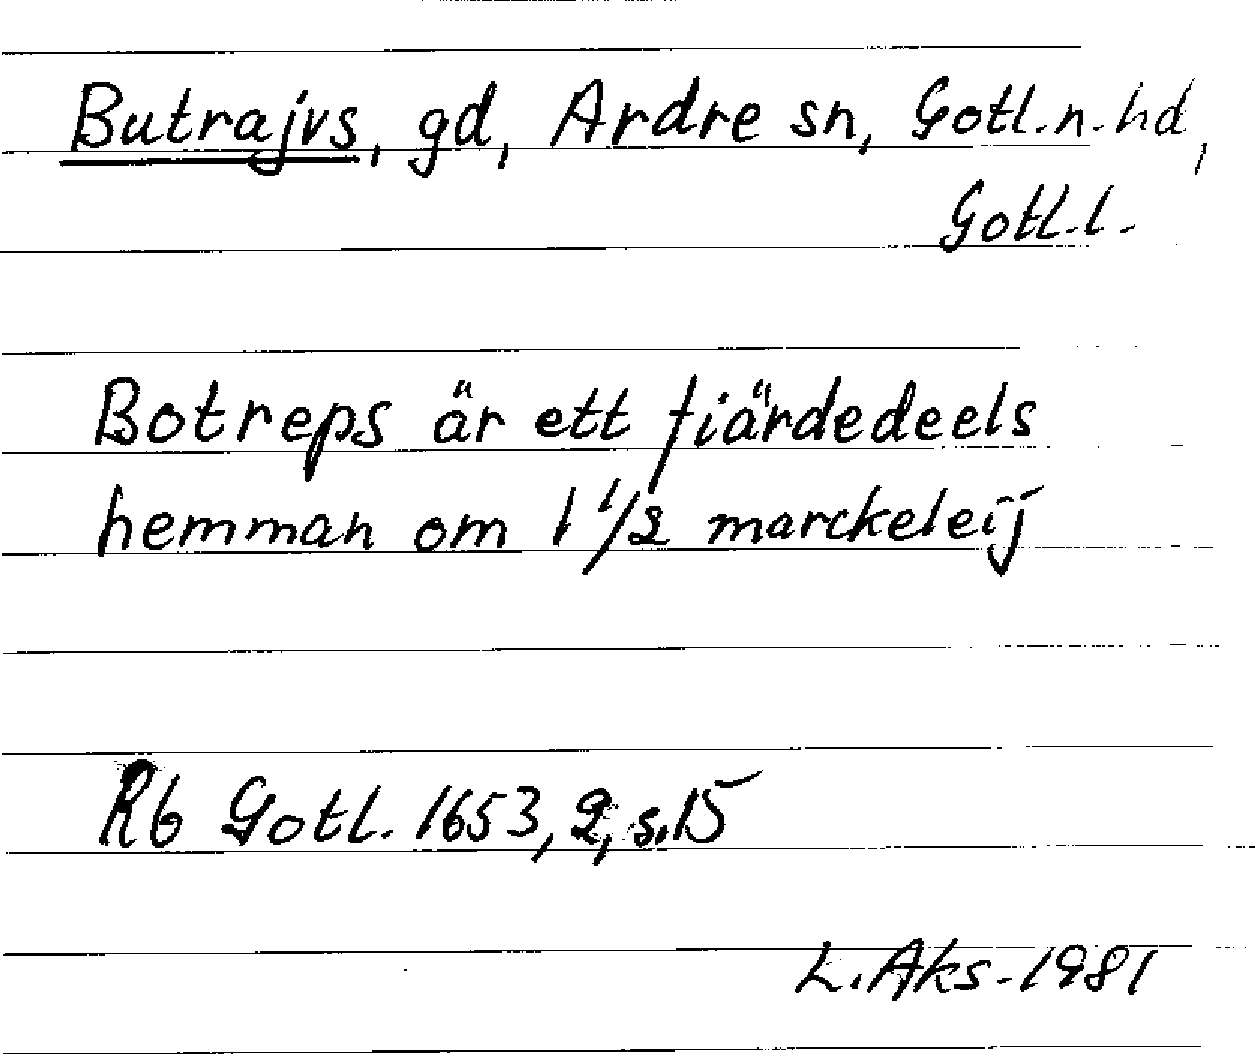 Butrajvs, gd, Ardre sn, Gotl.n.hd,
Gotl.l.
Botreps är ett fiärdedeels
hemman om 1 1/2 marckeleij
Rb Gotl. 1653, 2, s.15
L. Aks. 1981